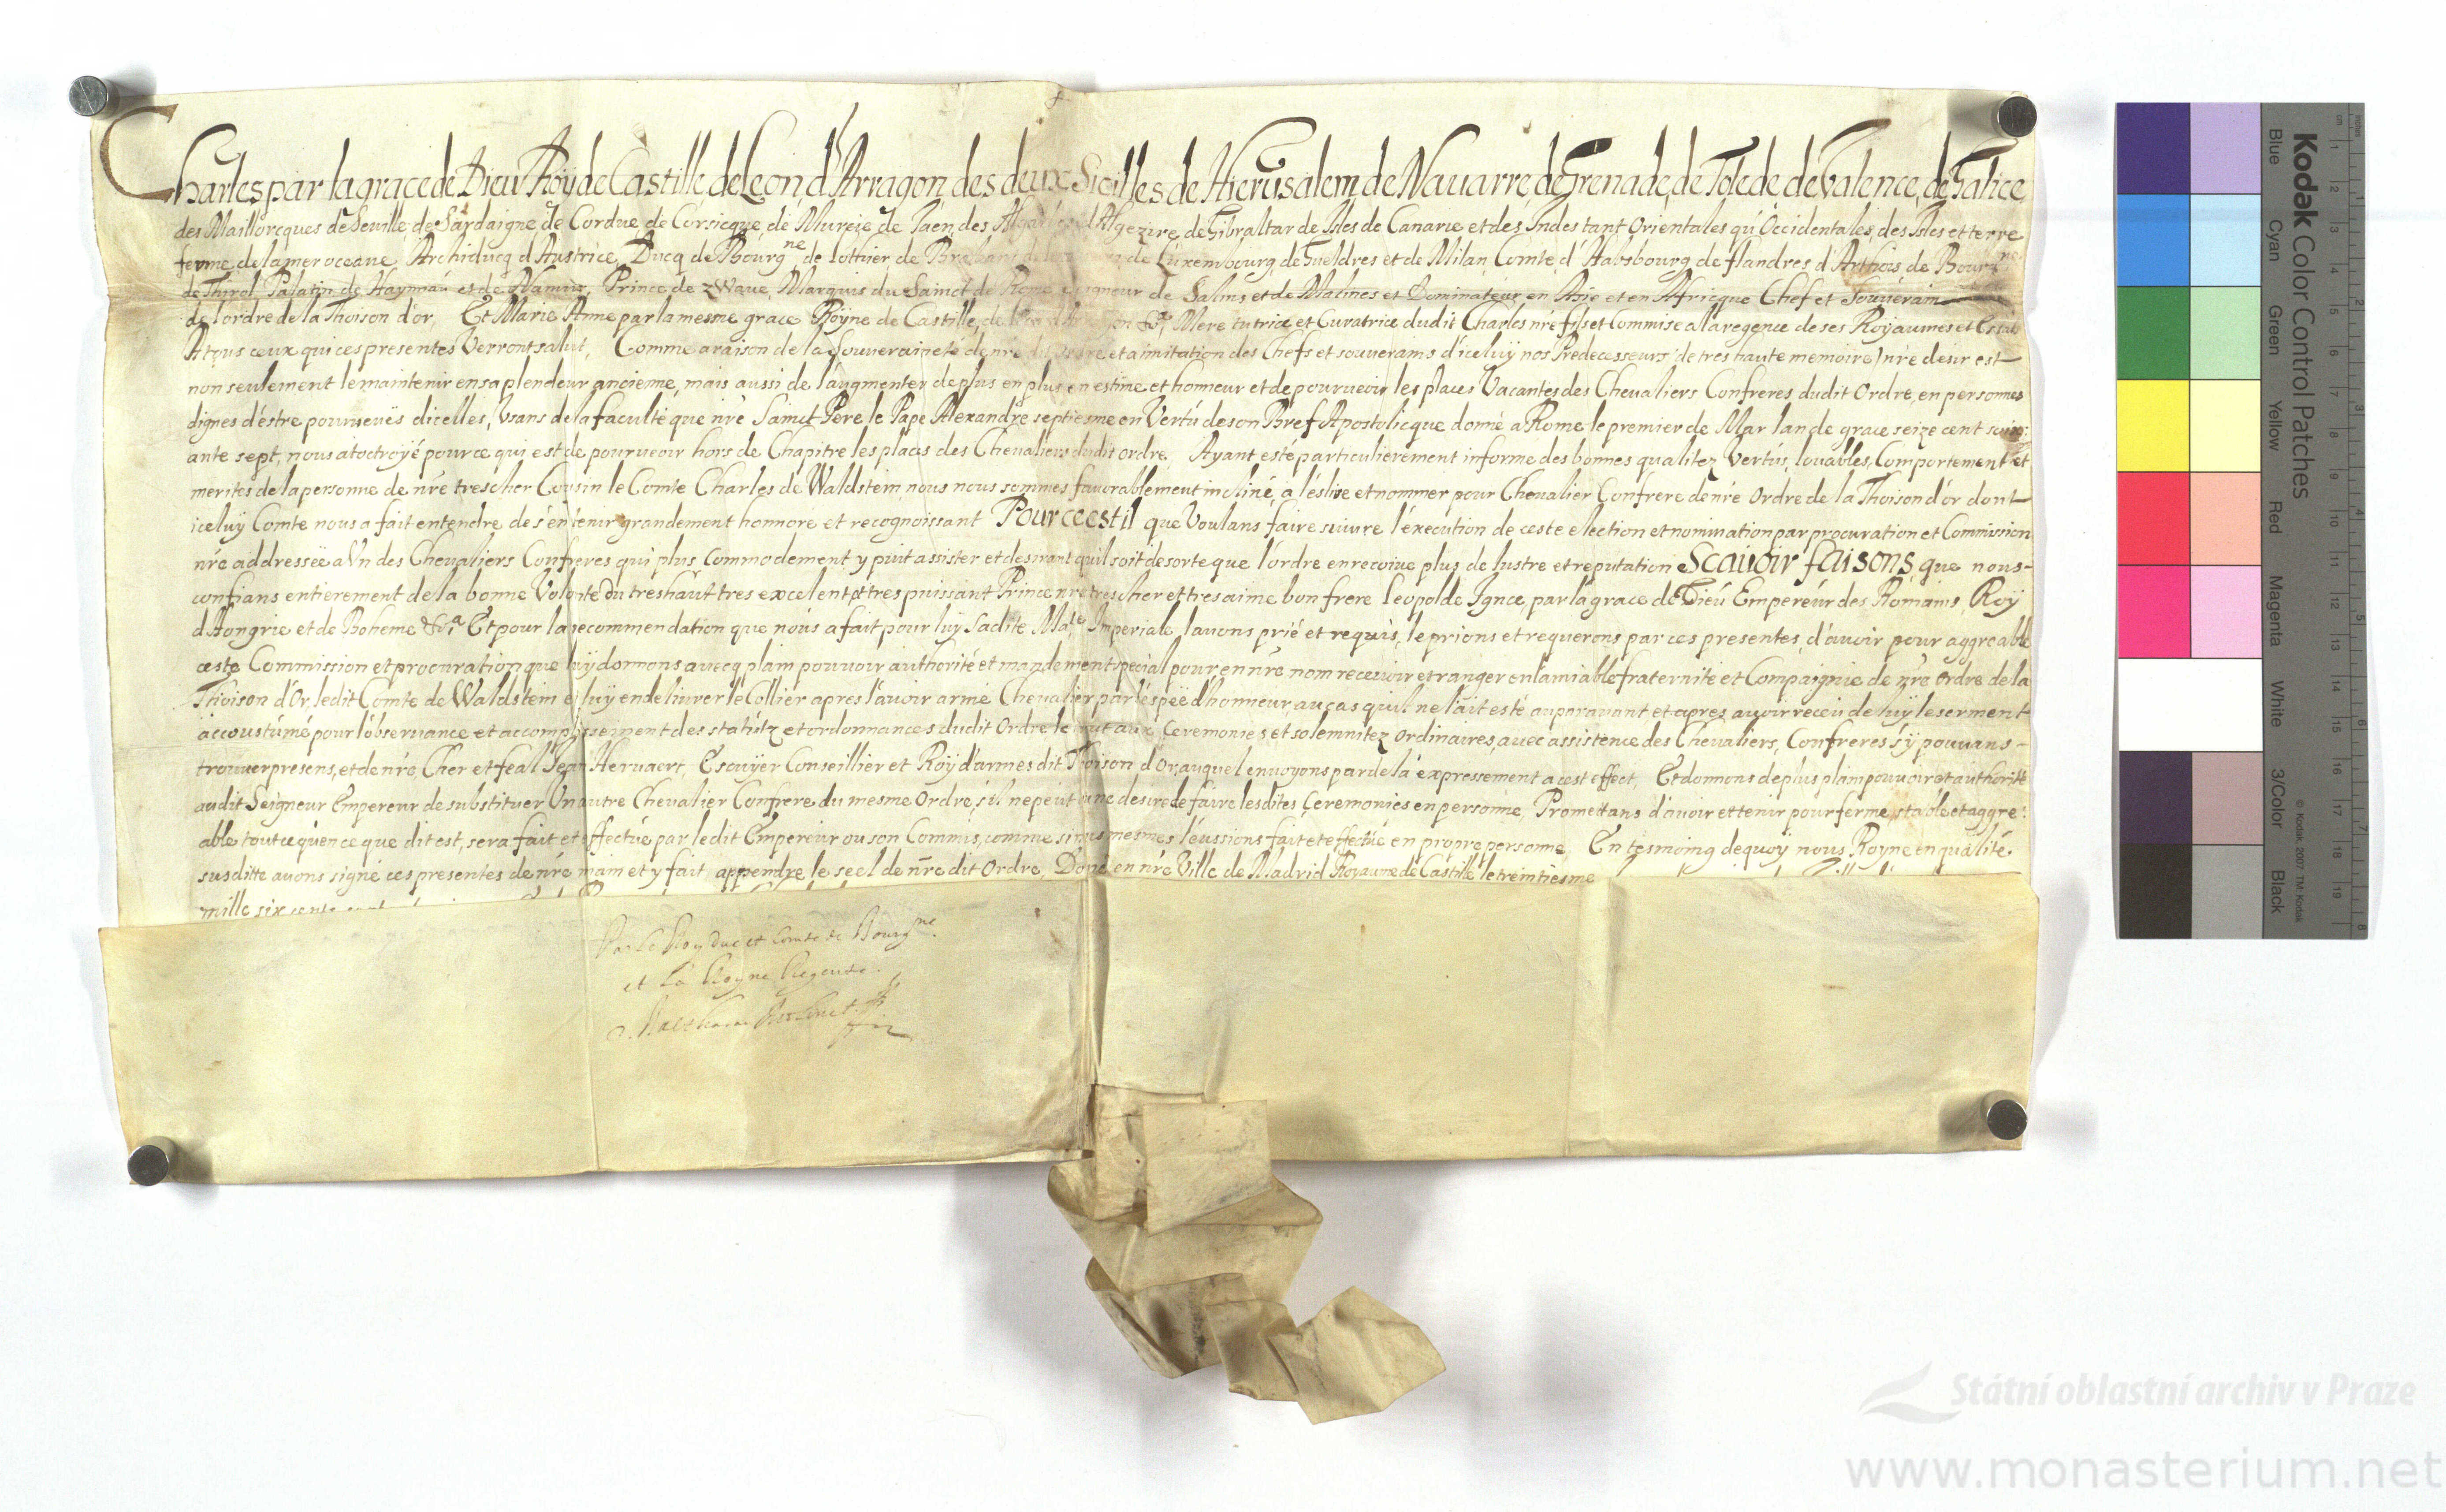 Charles par la grace de Dieu Roy de Castille, de Leon, d'Arragon, des deux Sicilles, de Hierusalem, de Nauarre, de Grenade, de Tolede, de Valence, de Galice
des Maillorcques de Seuille, de Sardaigne de Cordue, de Corsicque, de Murcie de Jaen, des d'Algezire, de Gibraltar de Isles de Canarie et des Indes tant Orientales qu'Occidentales, des Isles et terre
ferme, de la mer oceane, Archiducq d'Austrice, Ducq de Bourgne de lottrier de Brabant de Luxembourg, de Gueldres et de Milan, Comte d'Habsbourg, de flandres d'Arthois, de Bourgne
de Thirol Palatin de Haynnau et de Namur, Prince de zwaue, Marquis du Sainct de Rome Seigneur de Salins et de Malines et Dominateur en Asie et en Africque Chef et Souuerain
de l'ordre de la Thoison d'or, Et Marie Anne par la mesme grace Royne de Castille, de Mere tutrice et Curatrice dudit Charles nre fils et Commise a la regence de ses Royaumes et
A tous ceux qui ces presentes Verront salut, Comme a raison de la Souueraineté de nre et a imitation des Chefs et souuerains d'iceluy nos Predecesseurs (de tres haute memoire) nre desir est
non seulement le maintenir en sa plendeur ancienne, mais aussi de l'augmenter de plus en plus en estime et honneur et de pourueoir les places Vacantes des Cheualiers Confreres dudit Ordre, en personnes
dignes d'estre pourueuës dicelles, Vsans de la faculté que nre Sainct Pere le Pape Alexandre septiesme en Vertu de son Bref Apostolicque donné a Rome le premier de Mar lan de grace seize cent soix:
ante sept, nous at octroyé pour ce qui est de pourueoir hors de Chapitre les places des Cheualiers dudit ordre. Ayant esté particulierement informe des bonnes qualitez Vertus, louables, Comportement et
merites de la personne de nre trescher Cousin le Comte Charles de Waldstein nous nous sommes fauorablement incliné, a l'eslire et nommer pour Cheualier Confrere de nre Ordre de la Thoison d'or dont
iceluy Comte nous a fait entendre de s'en tenir grandement honnore et recognoissant Pour ce est il que Voulans faire suiure l'execution de ceste election et nomination par procuration et Commission
nre addressée a Vn des Cheualiers Confreres qui plus Commodement y puit assister et desirant quil soit de sorte que l'ordre en recoiue plus de lustre et reputation Scauoir faisons que nous-
confians entierement de la bonne Volonte du treshaut tres excelent et tres puissant Prince nre trescher et tres aime bon frere Leopolde Ignce, par la grace de Dieu Empereur des Romains, Roy
d'Hongrie et de Boheme &a Et pour la recommendation que nous a fait pour luy Sadite Mate Imperiale, lauons prié et requis, le prions et requerons par ces presentes, d'auoir pour aggreable
ceste Commission et procuration que luy donnons auecq plain pouuoir authorité et mandement special pour en nre nom receuoir et ranger en l'amiable fraternite et Compaignie de nre Ordre de la
Thoison d'Or, ledit Comte de Waldstein et luy en deliurer le Collier apres l'auoir armé Cheualier par l'espeë d'honneur, au cas quil ne l'ait esté auparauant et apres auoir receu de luy le serment
accoustumé pour l'obseruance et accomplissement des statutz et ordonnances dudit Ordre le tout aux Ceremonies et solemnitez ordinaires, auec assistence des Cheualiers, Confreres s'y pouuans -
trouuer presens, et de nre, Cher et feal Jean Heruaert, Escuyer Conseillier et Roy d'armes dit Thoison d'Or, auquel enuoyons par dela expressement a cest effect, Et donnons de plus plain pouuoir et authorité
audit Seigneur Empereur de substituer Vn autre Cheualier Confrere du mesme Ordre, s'il ne peut une desire de faire lesdites Ceremonies en personne, Promettans d'auoir et tenir pour ferme, stable et aggre:
able tout ce qu'en ce que dit est, sera fait et effectué par ledit Empereur ou son Commis, comme si nous mesmes l'eussions fait et effectué en propre personne, En tesmoing de quoy nous Royne en qualité
susditte auons signé ces presentes de nre main et y fait appendre le seel de nre dit Ordre, Doné en nre Ville de Madrid Royaume de Castille le trentiesme
mille six cents
Par le Roy Duc et Comte de Bourgne
et La Royne Regente.
Kodak Color Control Patches
Blue Cyan Green Yellow Red Magenta White 3/Color Black
© Kodak, 2007 TM: Kodak
cm 1 2 3 4 5 6 7 8 9 10 11 12 13 14 15 16 17 18 19
inches 1 2 3 4 5 6 7 8
Státní oblastní archiv v Praze
www.monasterium.net